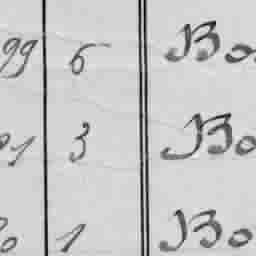 99 6 Bo
01 3 Bo
0 1 Bo